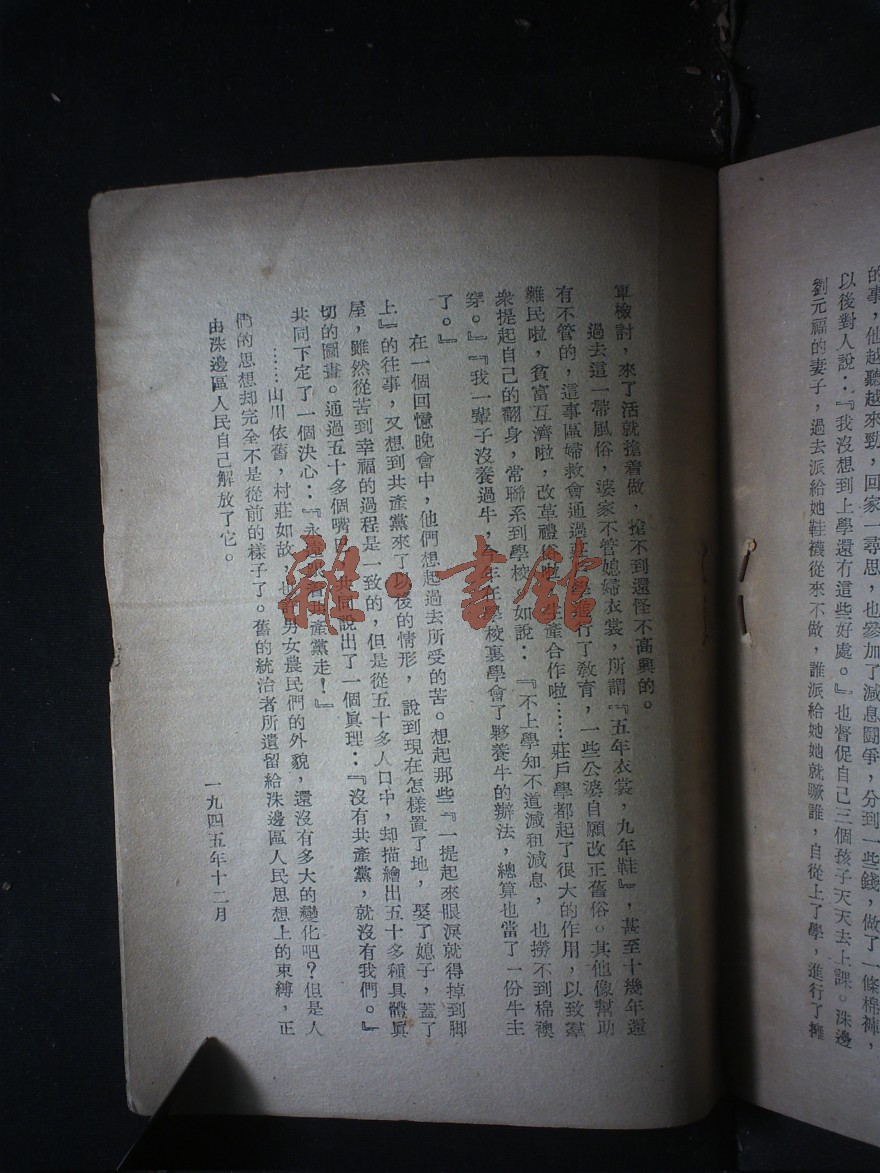 的事，他越聽越來勁，回家一尋思，也參加了減息鬪爭，分到一些錢，做了一條棉褲，
以後對人說：『我沒想到上學還有這些好處。』也督促自己三個孩子天天去上課。洙邊
劉元福的妻子，過去派給她鞋襪從來不做，誰派給她她就噘誰，自從上了學，進行了擁
軍檢討，來了活就搶着做，搶不到還怪不高興的。
過去這一帶風俗，婆家不管媳婦衣裳，所謂『五年衣裳，九年鞋』，甚至十幾年還
有不管的，這事區婦救會通過 學進行了敎育，一些公婆自願改正舊俗。其他像幫助
難民啦，貧富互濟啦，改革禮俗 生產合作啦……莊戶學都起了很大的作用，以致羣
衆提起自己的翻身，常聯系到學校，如說：『不上學知不道減租減息，也撈不到棉襖
穿。』『我一輩子沒養過牛，今年在學校裏學會了夥養牛的辦法，總算也當了一份牛主
了。』
在一個回憶晚會中，他們想起過去所受的苦。想起那些『一提起來眼淚就得掉到脚
上』的往事，又想到共產黨來了以後的情形，說到現在怎樣置了地，娶了媳子，蓋了
屋，雖然從苦到幸福的過程是一致的，但是從五十多人口中，却描繪出五十多種具體眞
切的圖畫。通過五十多個嘴 共同說出了一個眞理：『沒有共產黨，就沒有我們。』
共同下定了一個決心：『永遠 產黨走！』
……山川依舊，村莊如故，也許男女農民們的外貌，還沒有多大的變化吧？但是人
們的思想却完全不是從前的樣子了。舊的統治者所遺留給洙邊區人民思想上的束縛，正
由洙邊區人民自己解放了它。
一九四五年十二月
雜·書館